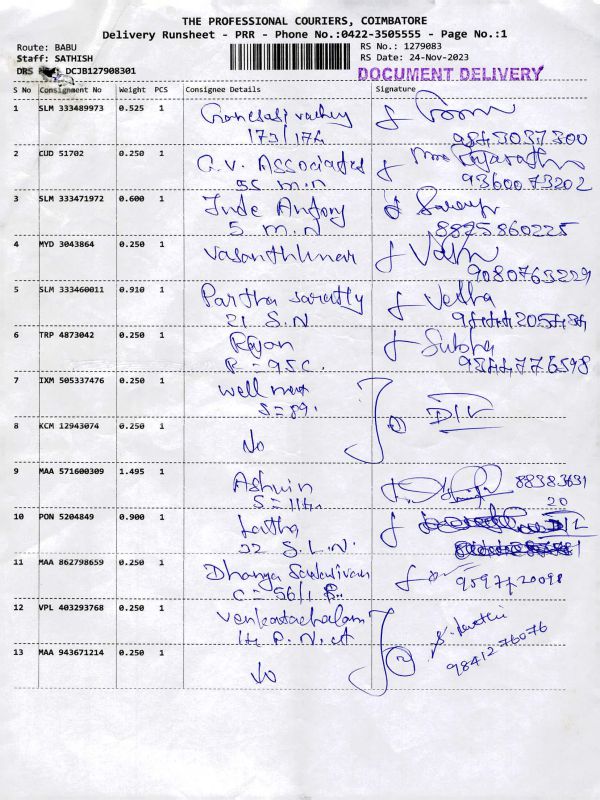 THE PROFESSIONAL COURIERS, COIMBATORE
Delivery Runsheet - PRR - Phone No.:0422-3505555 - Page No.:1
Route: BABU
Staff: SATHISH
DRS DCJB127908301
RS No.: 1279083
RS Date: 24-Nov-2023
DOCUMENT DELIVERY
S No Consignment No Weight PCS Consignee Details Signature
1 SLM 333489973 0.525 1
173/174
9845037300
2 CUD 51702 0.250 1 G.V. Associates
55 m.n
9360073202
3 SLM 333471972 0.600 1 Jude Antony
5 m.n
8825860225
4 MYD 3043864 0.250 1 Vasanthkumar
9080763229
5 SLM 333460011 0.910 1 Partha Saratly Vetha
21 S.N
6 TRP 4873042 0.250 1 Rajan Subha
R = 95 C.
9844776598
7 IXM 505337476 0.250 1 Well
S = 89.
D/L
8 KCM 12943074 0.250 1
9 MAA 571600309 1.495 1 Ashwin 88383631
S = 114. 20
10 PON 5204849 0.900 1 Latha D/L
22 S.L.N.
11 MAA 862798659 0.250 1 Dhanya
C = 56/1
9597720098
12 VPL 403293768 0.250 1 Venkatachalam
14 P.N.
98412 76076
13 MAA 943671214 0.250 1